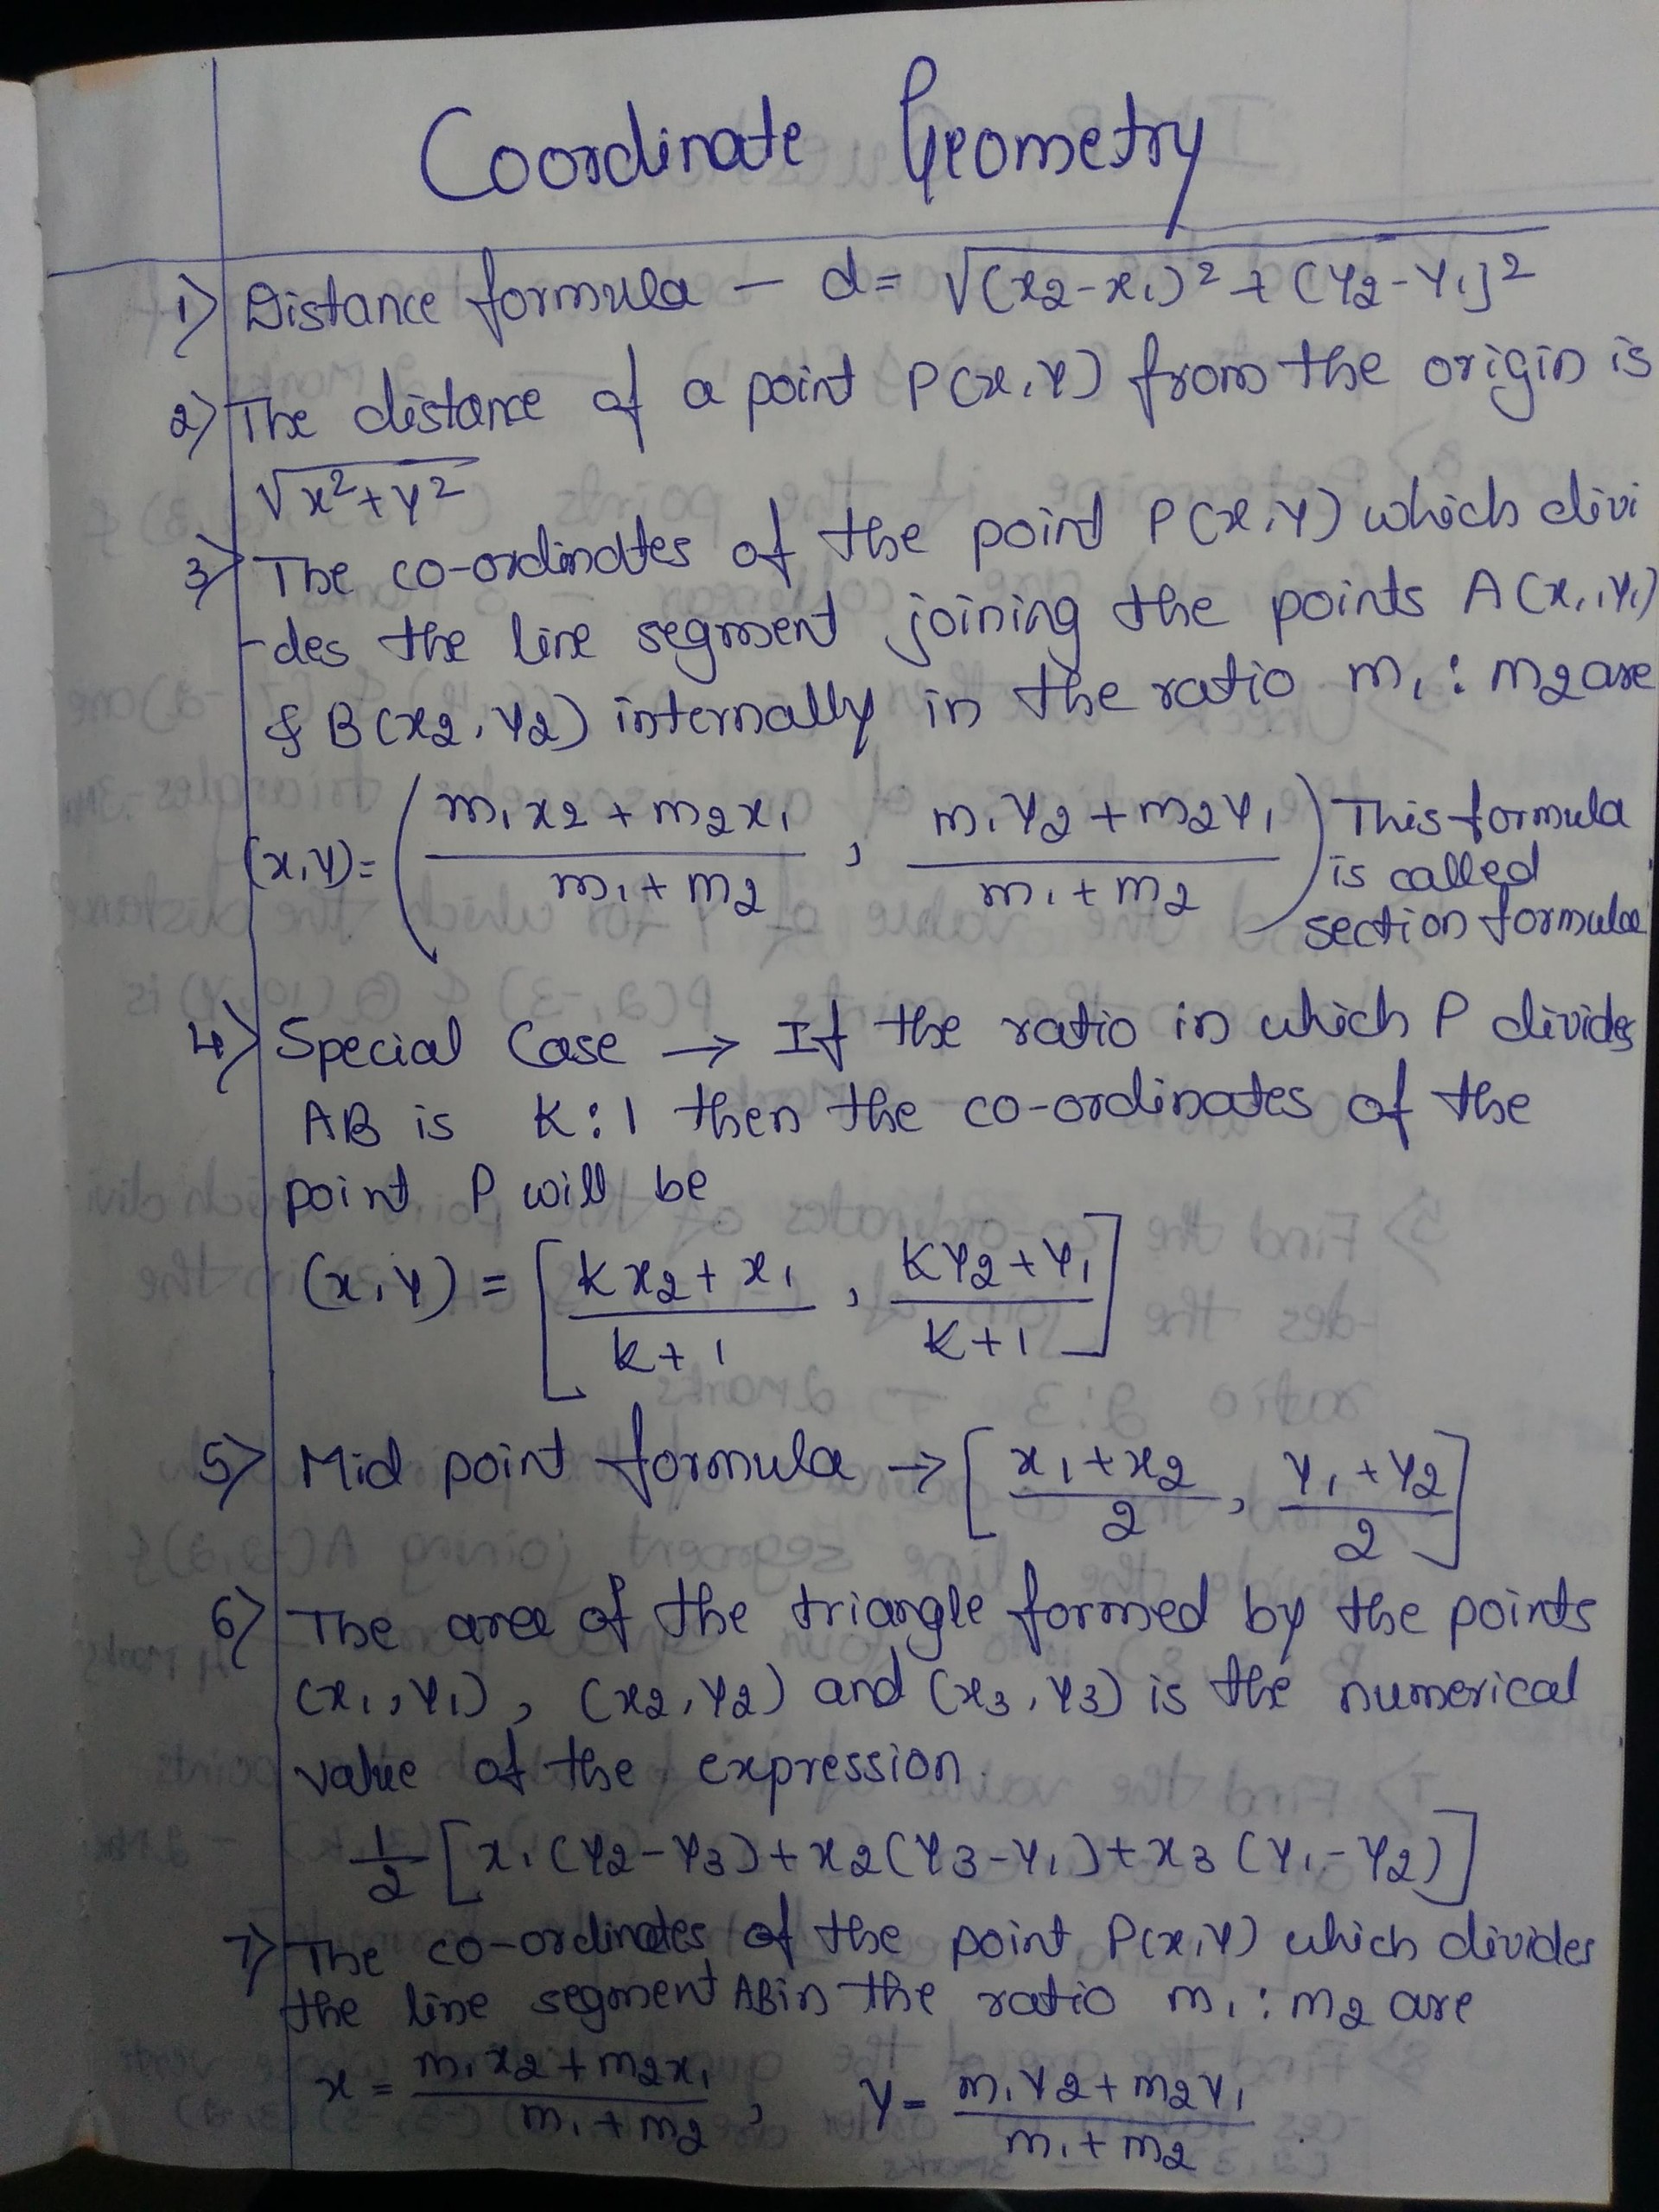 Coordinate Geometry
1) Distance formula – d = √(x2-x1)² + (y2-y1)²
2) The distance of a point P(x,y) from the origin is
√x²+y²
3) The co-ordinates of the point P(x,y) which divi
-des the line segment joining the points A(x1,y1)
& B(x2,y2) internally in the ratio m1 : m2 are
(x,y) = ( m1x2 + m2x1 / m1 + m2 , m1y2 + m2y1 / m1 + m2 ) This formula
is called
section formula
4) Special Case → If the ratio in which P divides
AB is K:1 then the co-ordinates of the
point P will be
(x,y) = [ kx2 + x1 / k+1 , ky2 + y1 / k+1 ]
5) Mid point formula → [ x1+x2 / 2 , y1+y2 / 2 ]
6) The area of the triangle formed by the points
(x1,y1), (x2,y2) and (x3,y3) is the numerical
value of the expression.
1/2 [ x1(y2-y3) + x2(y3-y1) + x3(y1-y2) ]
7) The co-ordinates of the point P(x,y) which divides
the line segment AB in the ratio m1 : m2 are
x = m1x2 + m2x1 / m1 + m2 , y = m1y2 + m2y1 / m1 + m2 .